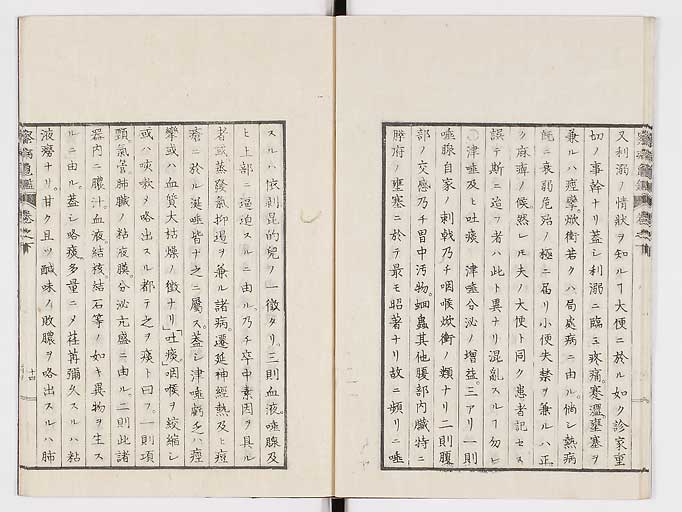 又利溺ノ情狀ヲ知ルヿ大便ニ於ル如ク診家重
切ノ事幹ナリ蓋シ利溺ニ臨ミ疼痛蹇澀壅塞ヲ
兼ルハ痙攣焮衝若クハ局處病ニ由ル倘シ熱病
既ニ衰弱危殆ノ極ニ届リ小便失禁ヲ兼ルハ正
ク麻痺ノ候然レ𪜈夫ノ大便ト同ク患者記セス
誤テ斯ニ迨フ者ハ此ト異ナリ混亂スルヿ勿レ
〇津唾及ヒ吐痰 津唾分泌ノ增益三アリ一則
唾腺自家ノ刺戟乃チ咽喉焮衝ノ類ナリ二則腹
部ノ交感乃チ胃中汚物蛔蟲其他腹部内臓特ニ
膵府ノ壅塞ニ於テ最モ昭著ナリ故ニ頻リニ唾
スルハ依剥昆的兒ノ一徴タリ三則血液唾腺及
ヒ上部ニ逼迫スルニ由ル乃チ卒中素因ヲ具ル
者或ハ蒸發氣抑遏ヲ兼ル諸病遷延神經熱及ヒ痘
瘡ニ於ル涎唾皆十之ニ屬ス蓋シ津唾虧乏ハ痙
攣或ハ血質大枯燥ノ徴ナリ「吐痰」咽喉ヲ絞縮シ
或ハ咳嗽ヲ咯出スル都テ之ヲ痰ト曰フ一則項
頸氣管肺臓ノ粘液膜分泌亢盛ニ由ル二則此諸
器内ニ膿汁血液結核結石等ノ如キ異物ヲ生ス
ルニ由ル蓋シ咯痰多量ニメ荏苒彌久スルハ粘
液癆ナリ甘ク且ツ鹹味ノ敗膿ヲ咯出スルハ肺
十四